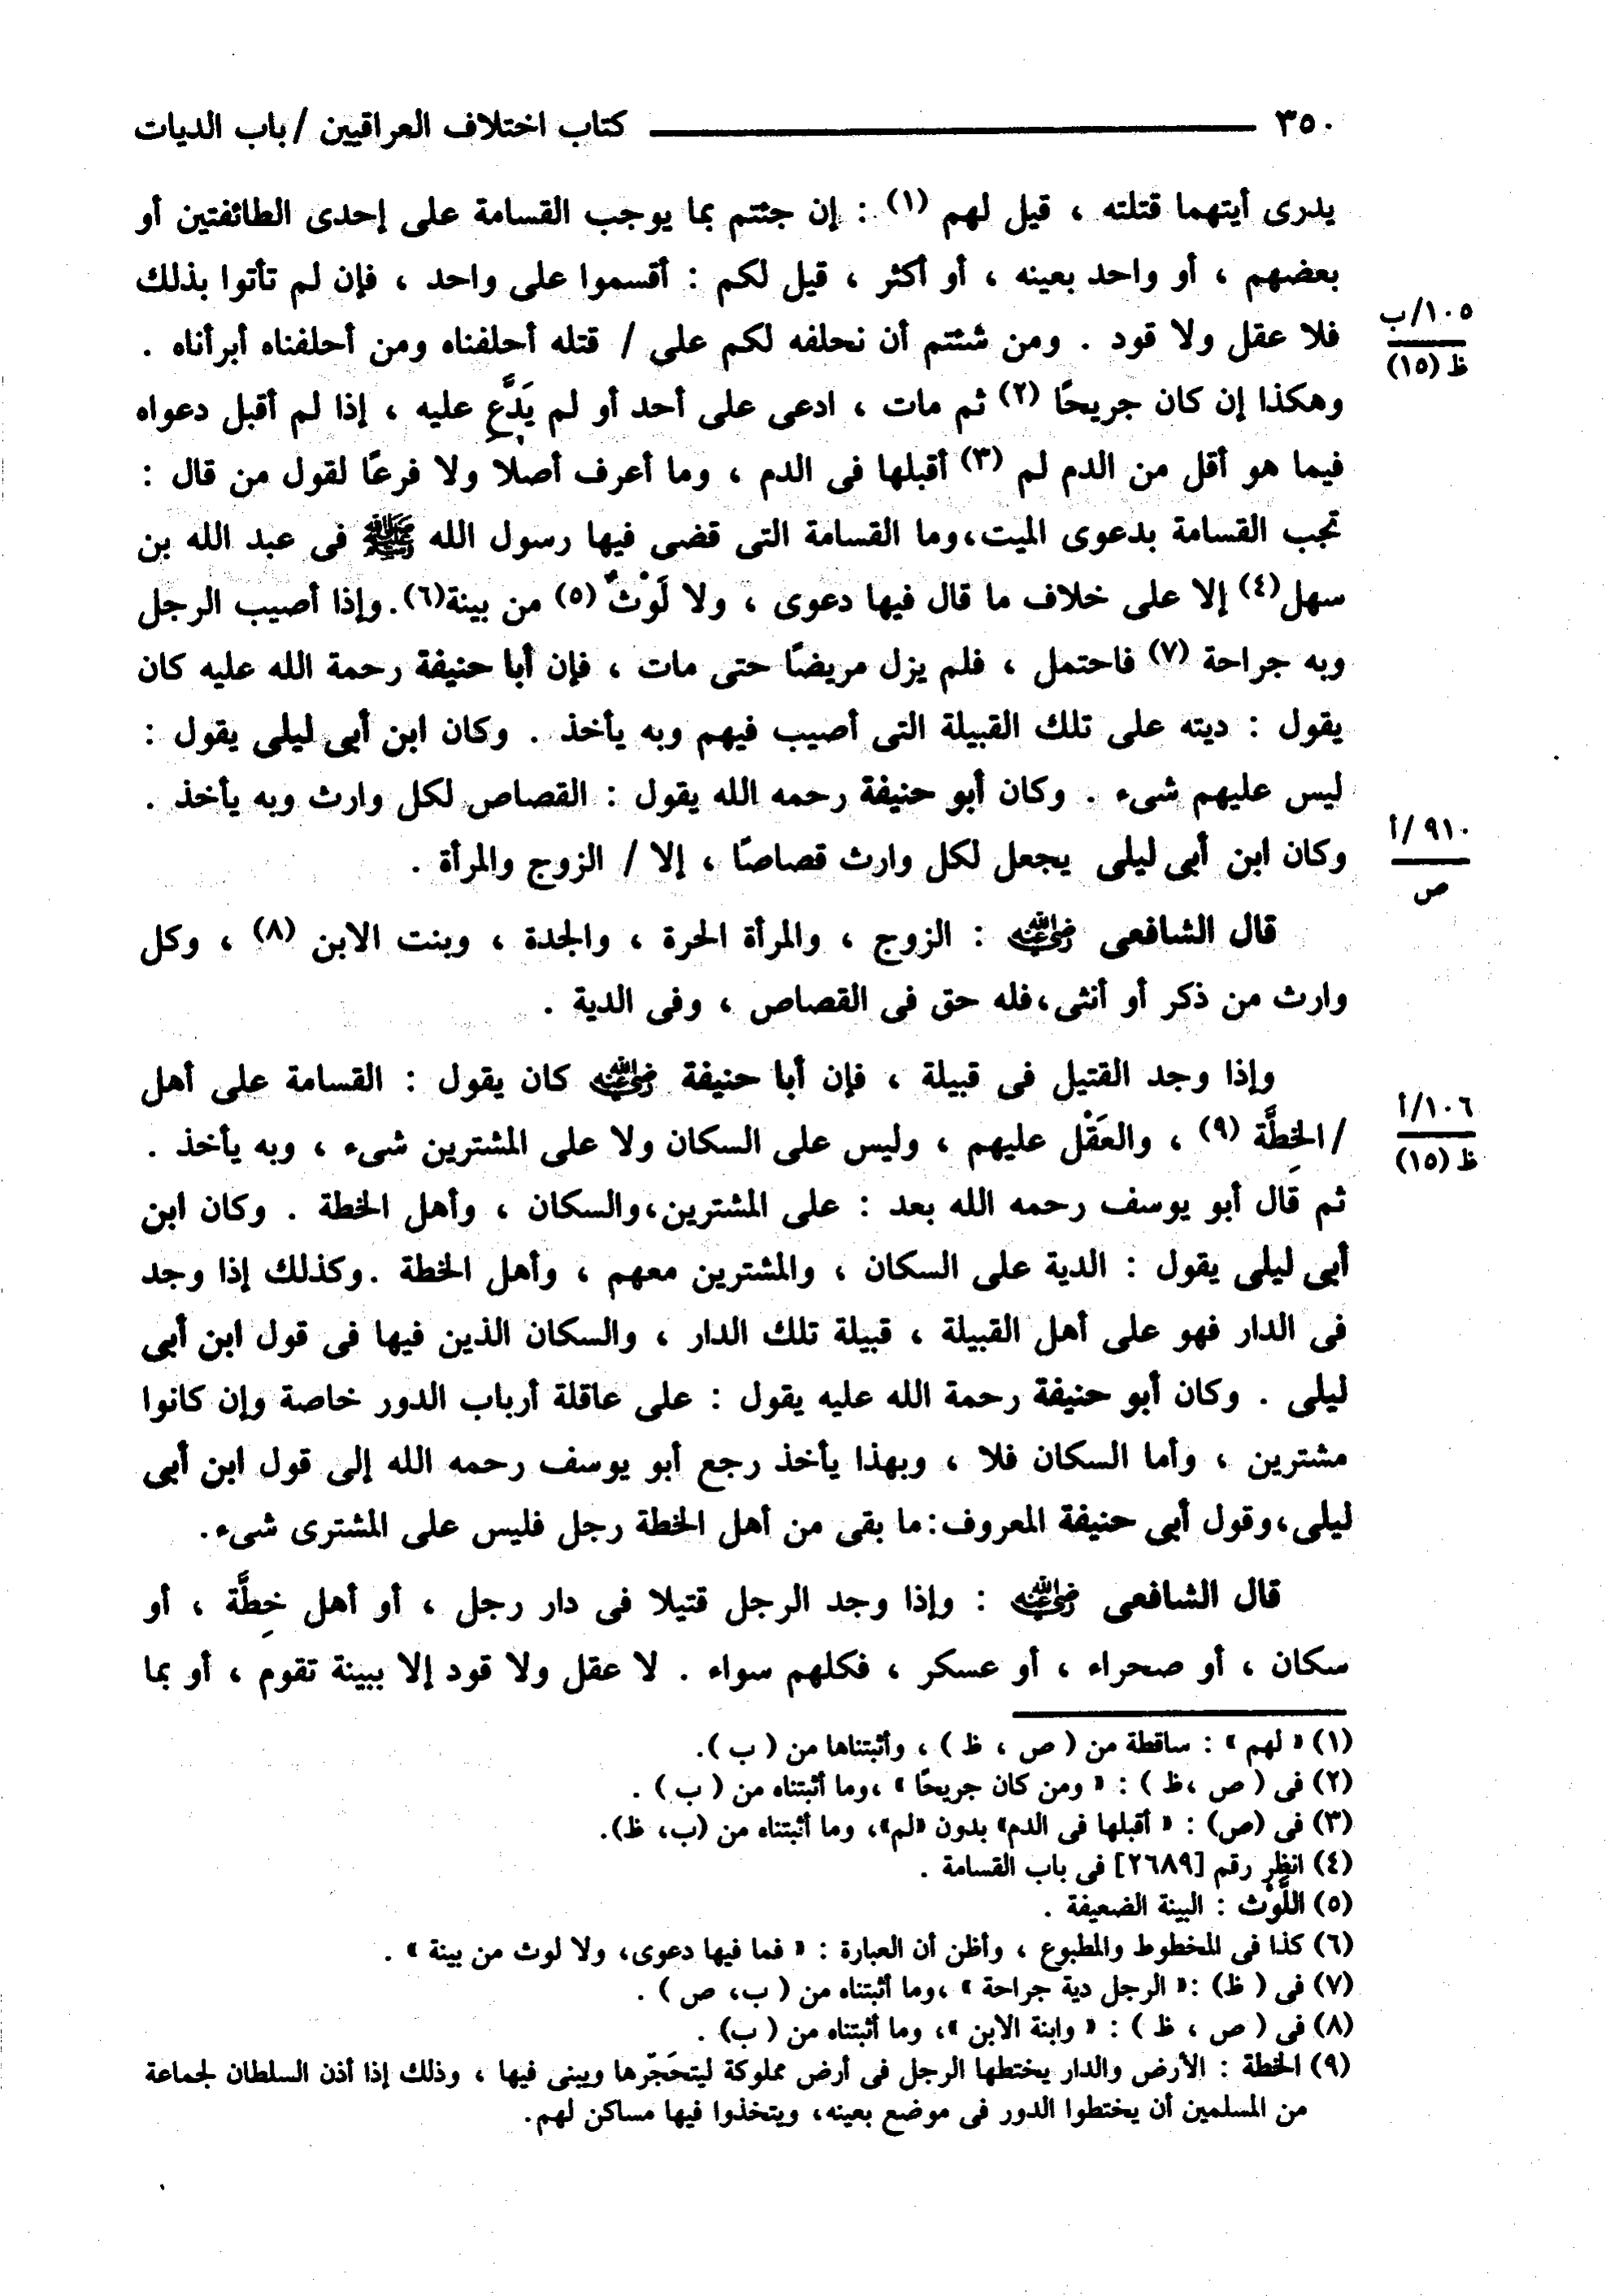 ٣٥٠ كتاب اختلاف العراقيين / باب الديات
يدرى أيتهما قتلته ، قيل لهم (١) : إن جئتم بما يوجب القسامة على إحدى الطائفتين أو
بعضهم ، أو واحد بعينه ، أو أكثر ، قيل لكم : أقسموا على واحد ، فإن لم تأتوا بذلك
١٠٥/ب
فلا عقل ولا قود . ومن شئتم أن نحلفه لكم على / قتله أحلفناه ومن أحلفناه أبرأناه .
ظ (١٥)
وهكذا إن كان جريحًا (٢) ثم مات ، ادعى على أحد أو لم يَدَّعِ عليه ، إذا لم أقبل دعواه
فيما هو أقل من الدم لم (٣) أقبلها فى الدم ، وما أعرف أصلا ولا فرعًا لقول من قال :
تجب القسامة بدعوى الميت،وما القسامة التى قضى فيها رسول الله ﷺ فى عبد الله بن
سهل(٤) إلا على خلاف ما قال فيها دعوى ، ولا لَوْثٌ (٥) من بينة(٦).وإذا أصيب الرجل
وبه جراحة (٧) فاحتمل ، فلم يزل مريضًا حتى مات ، فإن أبا حنيفة رحمة الله عليه كان
يقول : ديته على تلك القبيلة التى أصيب فيهم وبه يأخذ . وكان ابن أبى ليلى يقول :
ليس عليهم شىء . وكان أبو حنيفة رحمه الله يقول : القصاص لكل وارث وبه يأخذ .
٩١٠/أ
وكان ابن أبى ليلى يجعل لكل وارث قصاصًا ، إلا / الزوج والمرأة .
ص
قال الشافعى رضي الله عنه : الزوج ، والمرأة الحرة ، والجدة ، وبنت الابن (٨) ، وكل
وارث من ذكر أو أنثى،فله حق فى القصاص ، وفى الدية .
وإذا وجد القتيل فى قبيلة ، فإن أبا حنيفة رضي الله عنه كان يقول : القسامة على أهل
١٠٦/أ
/الخِطَّة (٩) ، والعَقْل عليهم ، وليس على السكان ولا على المشترين شىء ، وبه يأخذ .
ظ (١٥)
ثم قال أبو يوسف رحمه الله بعد : على المشترين،والسكان ، وأهل الخطة . وكان ابن
أبى ليلى يقول : الدية على السكان ، والمشترين معهم ، وأهل الخطة .وكذلك إذا وجد
فى الدار فهو على أهل القبيلة ، قبيلة تلك الدار ، والسكان الذين فيها فى قول ابن أبى
ليلى . وكان أبو حنيفة رحمة الله عليه يقول : على عاقلة أرباب الدور خاصة وإن كانوا
مشترين ، وأما السكان فلا ، وبهذا يأخذ رجع أبو يوسف رحمه الله إلى قول ابن أبى
ليلى،وقول أبى حنيفة المعروف:ما بقى من أهل الخطة رجل فليس على المشترى شىء.
قال الشافعى رضي الله عنه : وإذا وجد الرجل قتيلا فى دار رجل ، أو أهل خِطَّة ، أو
سكان ، أو صحراء ، أو عسكر ، فكلهم سواء . لا عقل ولا قود إلا ببينة تقوم ، أو بما
(١) « لهم » : ساقطة من ( ص ، ظ ) ، وأثبتناها من ( ب ).
(٢) فى ( ص ،ظ ) : « ومن كان جريحًا » ،وما أثبتناه من ( ب ) .
(٣) فى (ص) : « أقبلها فى الدم» بدون «لم»، وما أثبتناه من (ب، ظ).
(٤) انظر رقم [٢٦٨٩] فى باب القسامة .
(٥) اللَّوْث : البينة الضعيفة .
(٦) كذا فى المخطوط والمطبوع ، وأظن أن العبارة : « فما فيها دعوى، ولا لوث من بينة » .
(٧) فى ( ظ) :« الرجل دية جراحة » ،وما أثبتناه من ( ب، ص ) .
(٨) فى ( ص ، ظ ) : « وابنة الابن »، وما أثبتناه من ( ب) .
(٩) الخطة : الأرض والدار يختطها الرجل فى أرض مملوكة ليتحَجّرها ويبنى فيها ، وذلك إذا أذن السلطان لجماعة
من المسلمين أن يختطوا الدور فى موضع بعينه، ويتخذوا فيها مساكن لهم.